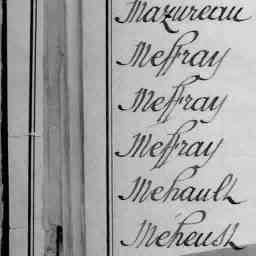 Mazureau
Meffray
Meffray
Meffray
Mehault
Méheust